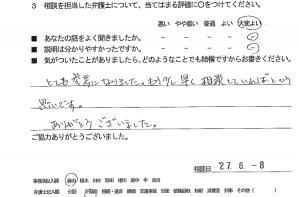 3 相談を担当した弁護士について、当てはまる評価に○をつけてください。
悪い やや悪い 普通 よい 大変よい
■ あなたの話をよく聞きましたか。
■ 説明は分かりやすかったですか。
■ 気がついたことがありましたら、どのようなことでも結構ですからお書きください。
とても参考になりました。もう少し早く相談していればという
思いです。
ありがとうございました。
ご協力ありがとうございました。
相談日 27. 6. -8